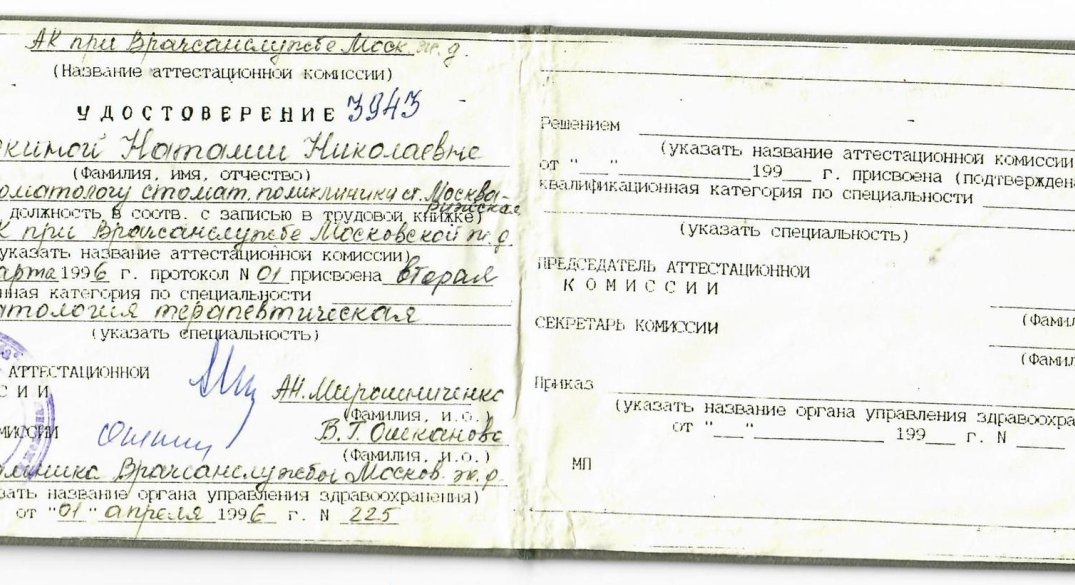 АК при Врачсанслужбе Моск. ж. д.
(Название аттестационной комиссии)
УДОСТОВЕРЕНИЕ 3943
киной Наталии Николаевне
(Фамилия, имя, отчество)
оматологу стомат. поликлиники ст. Москва-
Рижская
должность в соотв. с записью в трудовой книжке)
К при Врачсанслужбе Московской ж. д.
указать название аттестационной комиссии)
арта 1996 г. протокол N 01 присвоена вторая
нная категория по специальности
атология терапевтическая
(указать специальность)
АТТЕСТАЦИОННОЙ
С И И
А.Н. Мирошниченко
(Фамилия, и.о.)
МИССИИ
В.Г. Ошканова
(Фамилия, и.о.)
Врачсанслужбы Москов. ж. д.
зать название органа управления здравоохранения)
от "01" апреля 1996 г. N 225
Решением
(указать название аттестационной комиссии
от "__" 199__ г. присвоена (подтвержден
квалификационная категория по специальности
(указать специальность)
ПРЕДСЕДАТЕЛЬ АТТЕСТАЦИОННОЙ
К О М И С С И И
(Фамил
СЕКРЕТАРЬ КОМИССИИ
(Фамил
Приказ
(указать название органа управления здравоохра
от "__" 199__ г. N
МП